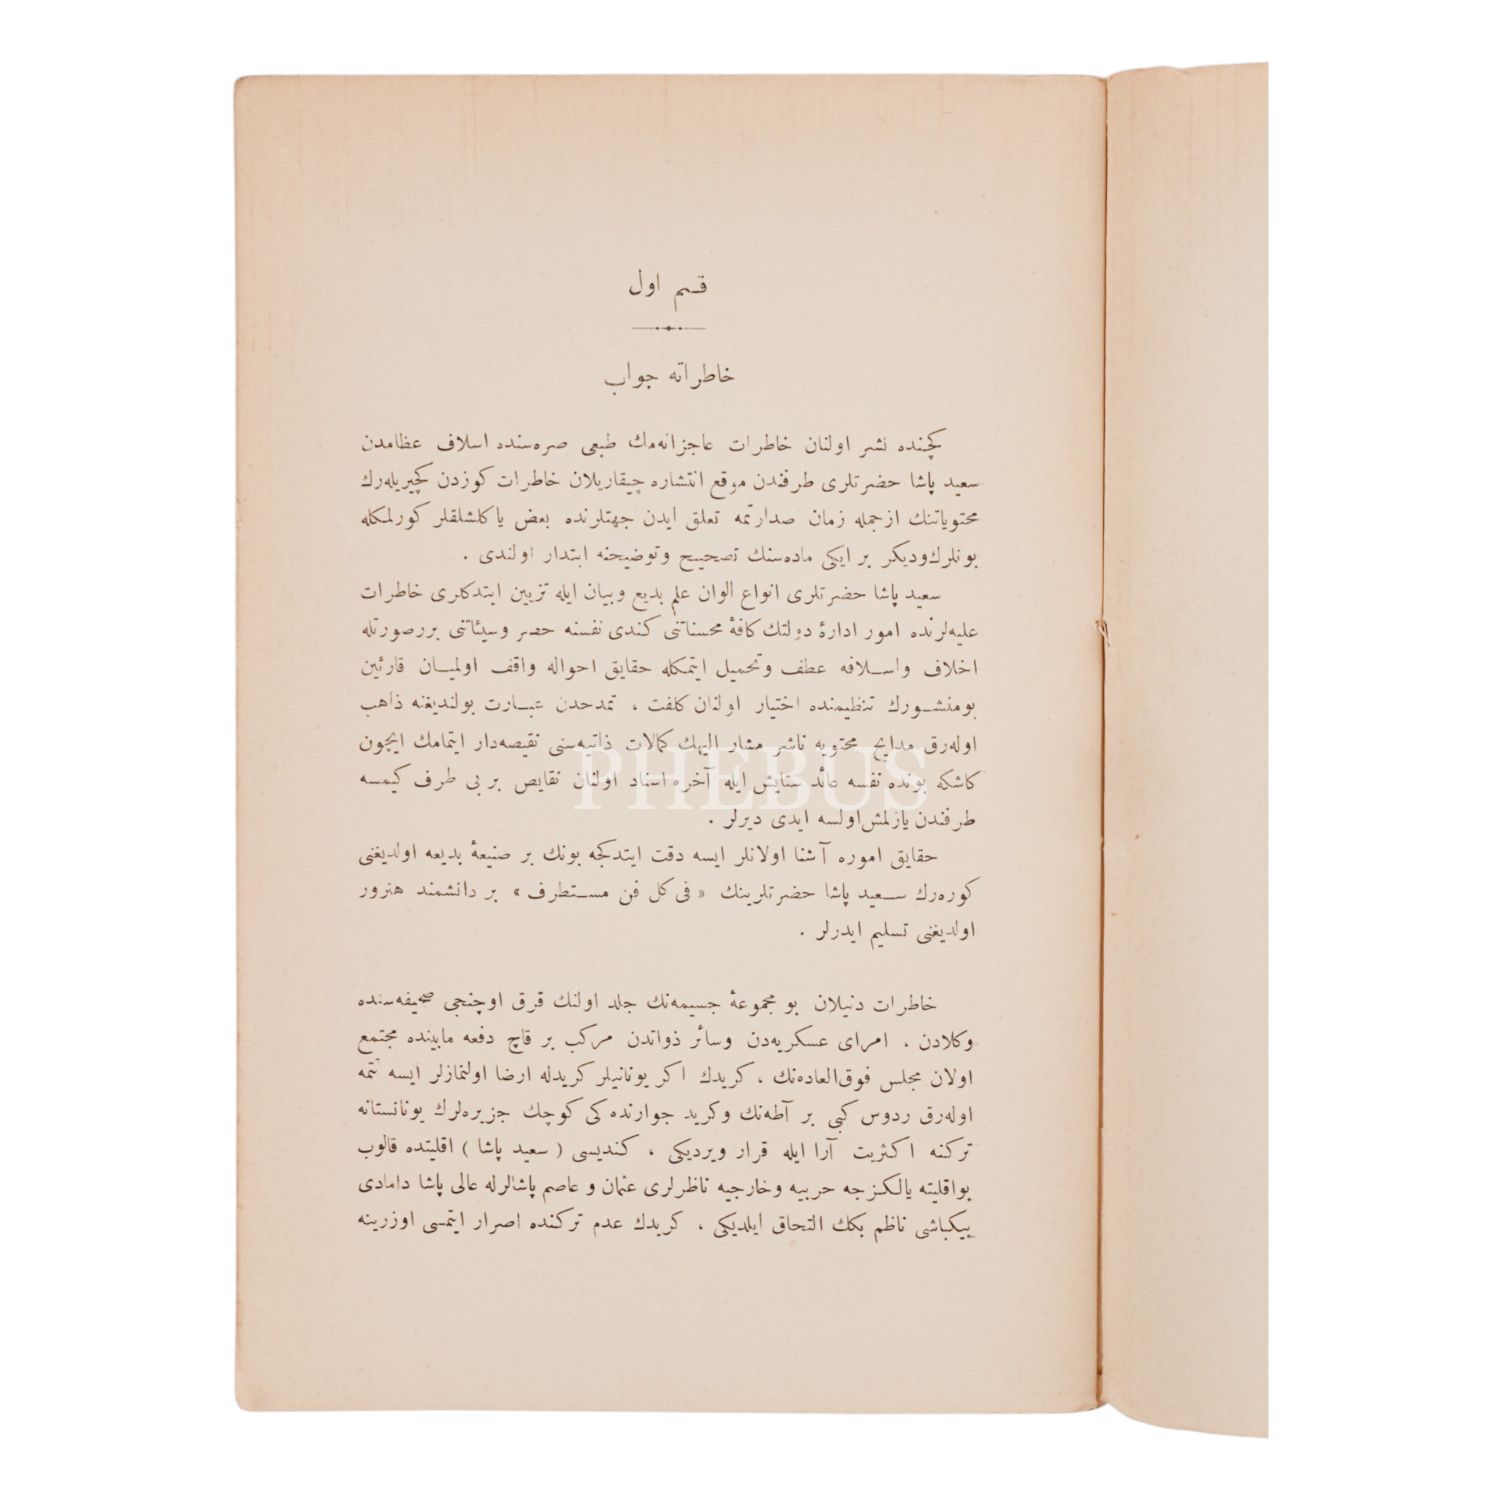 قسم اول
خاطراته جواب
كچنده نشر اولنان خاطرات عاجزانه‌مك طبعی صره‌سنده اسلاف عظامدن
سعيد پاشا حضرتلری طرفندن موقع انتشاره چيقاريلان خاطرات كوزدن كچيريله‌رك
محتوياتنك ازجمله زمان صدارتمه تعلق ايدن جهتلرنده بعض ياكلشلقلر كورلمكله
بونلرك وديكر بر ايكی ماده‌سنك تصحيح وتوضيحنه ابتدار اولندی .
سعيد پاشا حضرتلری انواع الوان علم بديع وبيان ايله تزيين ايتدكلری خاطرات
عليه‌لرنده امور ادارۀ دولتك كافۀ محسناتنی كندی نفسنه حصر وسيئاتنی بررصورتله
اخلاف واسلافه عطف وتحميل ايتمكله حقايق احواله واقف اولميان قارئين
بومنشورك تنظيمنده اختيار اولنان كلفت ، تمدحدن عبارت بولنديغنه ذاهب
اوله‌رق مدايح محتويه ناشر مشار اليهك كمالات ذاتيه‌سنی نقيصه‌دار ايتمامك ايچون
كاشكه بونده نفسه عائد ستايش ايله آخره اسناد اولنان نقايص بر بی طرف كيمسه
طرفندن يازلمش اولسه ايدی ديرلر .
حقايق اموره آشنا اولانلر ايسه دقت ايتدكجه بونك بر صنيعۀ بديعه اولديغنی
كوره‌رك سعيد پاشا حضرتلرينك « فی كل فن مستطرف » بر دانشمند هنرور
اولديغنی تسليم ايدرلر .
خاطرات دنيلان بو مجموعۀ جسيمه‌نك جلد اولنك قرق اوچنجی صحيفه‌سنده
وكلادن ، امرای عسكريه‌دن وسائر ذواتدن مركب بر قاچ دفعه مابينده مجتمع
اولان مجلس فوق‌العاده‌نك ، كريدك اكر يونانيلر كريدله ارضا اولنمازلر ايسه تتمه
اوله‌رق ردوس كبی بر آطه‌نك وكريد جوارنده كی كوچك جزيره‌لرك يونانستانه
تركنه اكثريت آرا ايله قرار ويرديكی ، كنديسی ( سعيد پاشا ) اقليتده قالوب
بواقليته يالكزجه حربيه وخارجيه ناظرلری عثمان و عاصم پاشالرله عالی پاشا دامادی
بيكباشی ناظم بكك التحاق ايلديكی ، كريدك عدم تركنده اصرار ايتمسی اوزرينه
PHEBUS